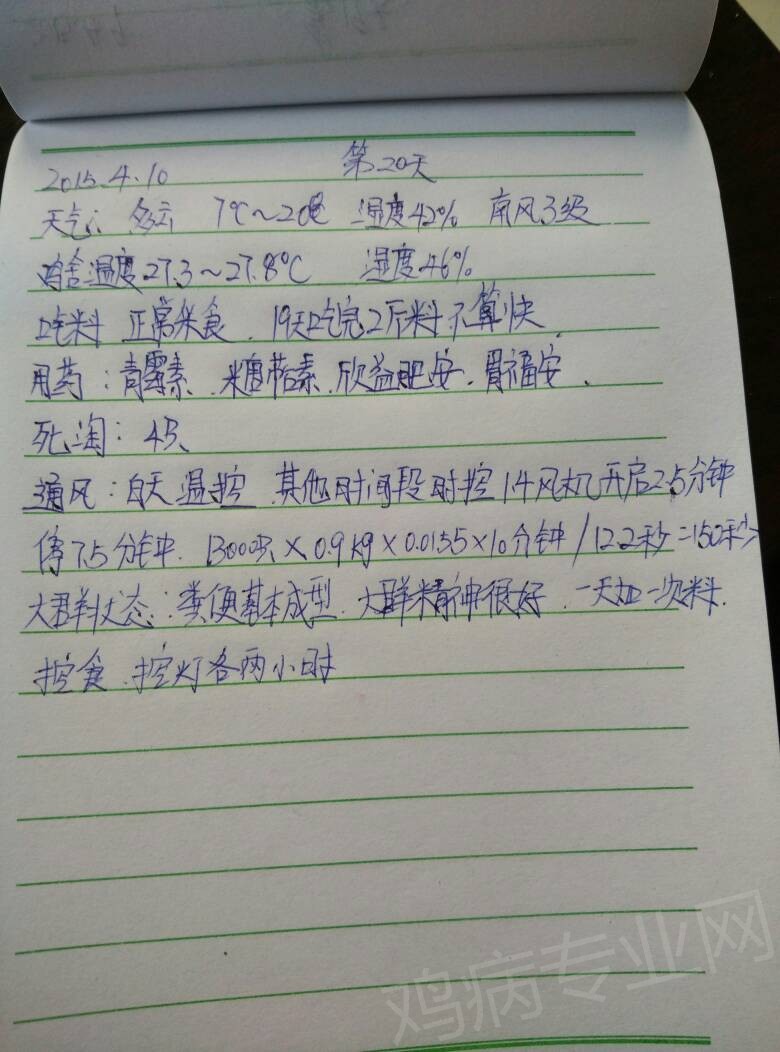 第20天
2015.4.10
天气: 多云 7℃～20℃ 湿度42% 南风3级
鸡舍温度27.3～27.8℃ 湿度46%
吃料 正常采食.19天吃完2斤料不算快.
用药：青霉素.米唑诺素.欣益肥安.胃福安.
死淘：4只
通风：白天温控 其他时间段时控 14风机开启2.5分钟
停7.5分钟. 13000只×0.9kg×0.0155×10分钟/12.2秒=150秒
大群状态：粪便基本成型.大群精神很好.一天加一次料.
控食.控灯各两小时
鸡病专业网